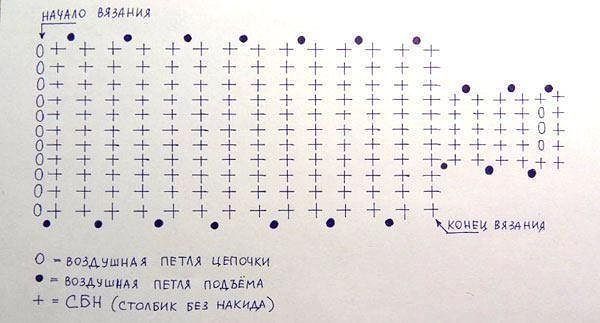 НАЧАЛО ВЯЗАНИЯ
КОНЕЦ ВЯЗАНИЯ
0 = ВОЗДУШНАЯ ПЕТЛЯ ЦЕПОЧКИ
● = ВОЗДУШНАЯ ПЕТЛЯ ПОДЪЁМА
+ = СБН (СТОЛБИК БЕЗ НАКИДА)